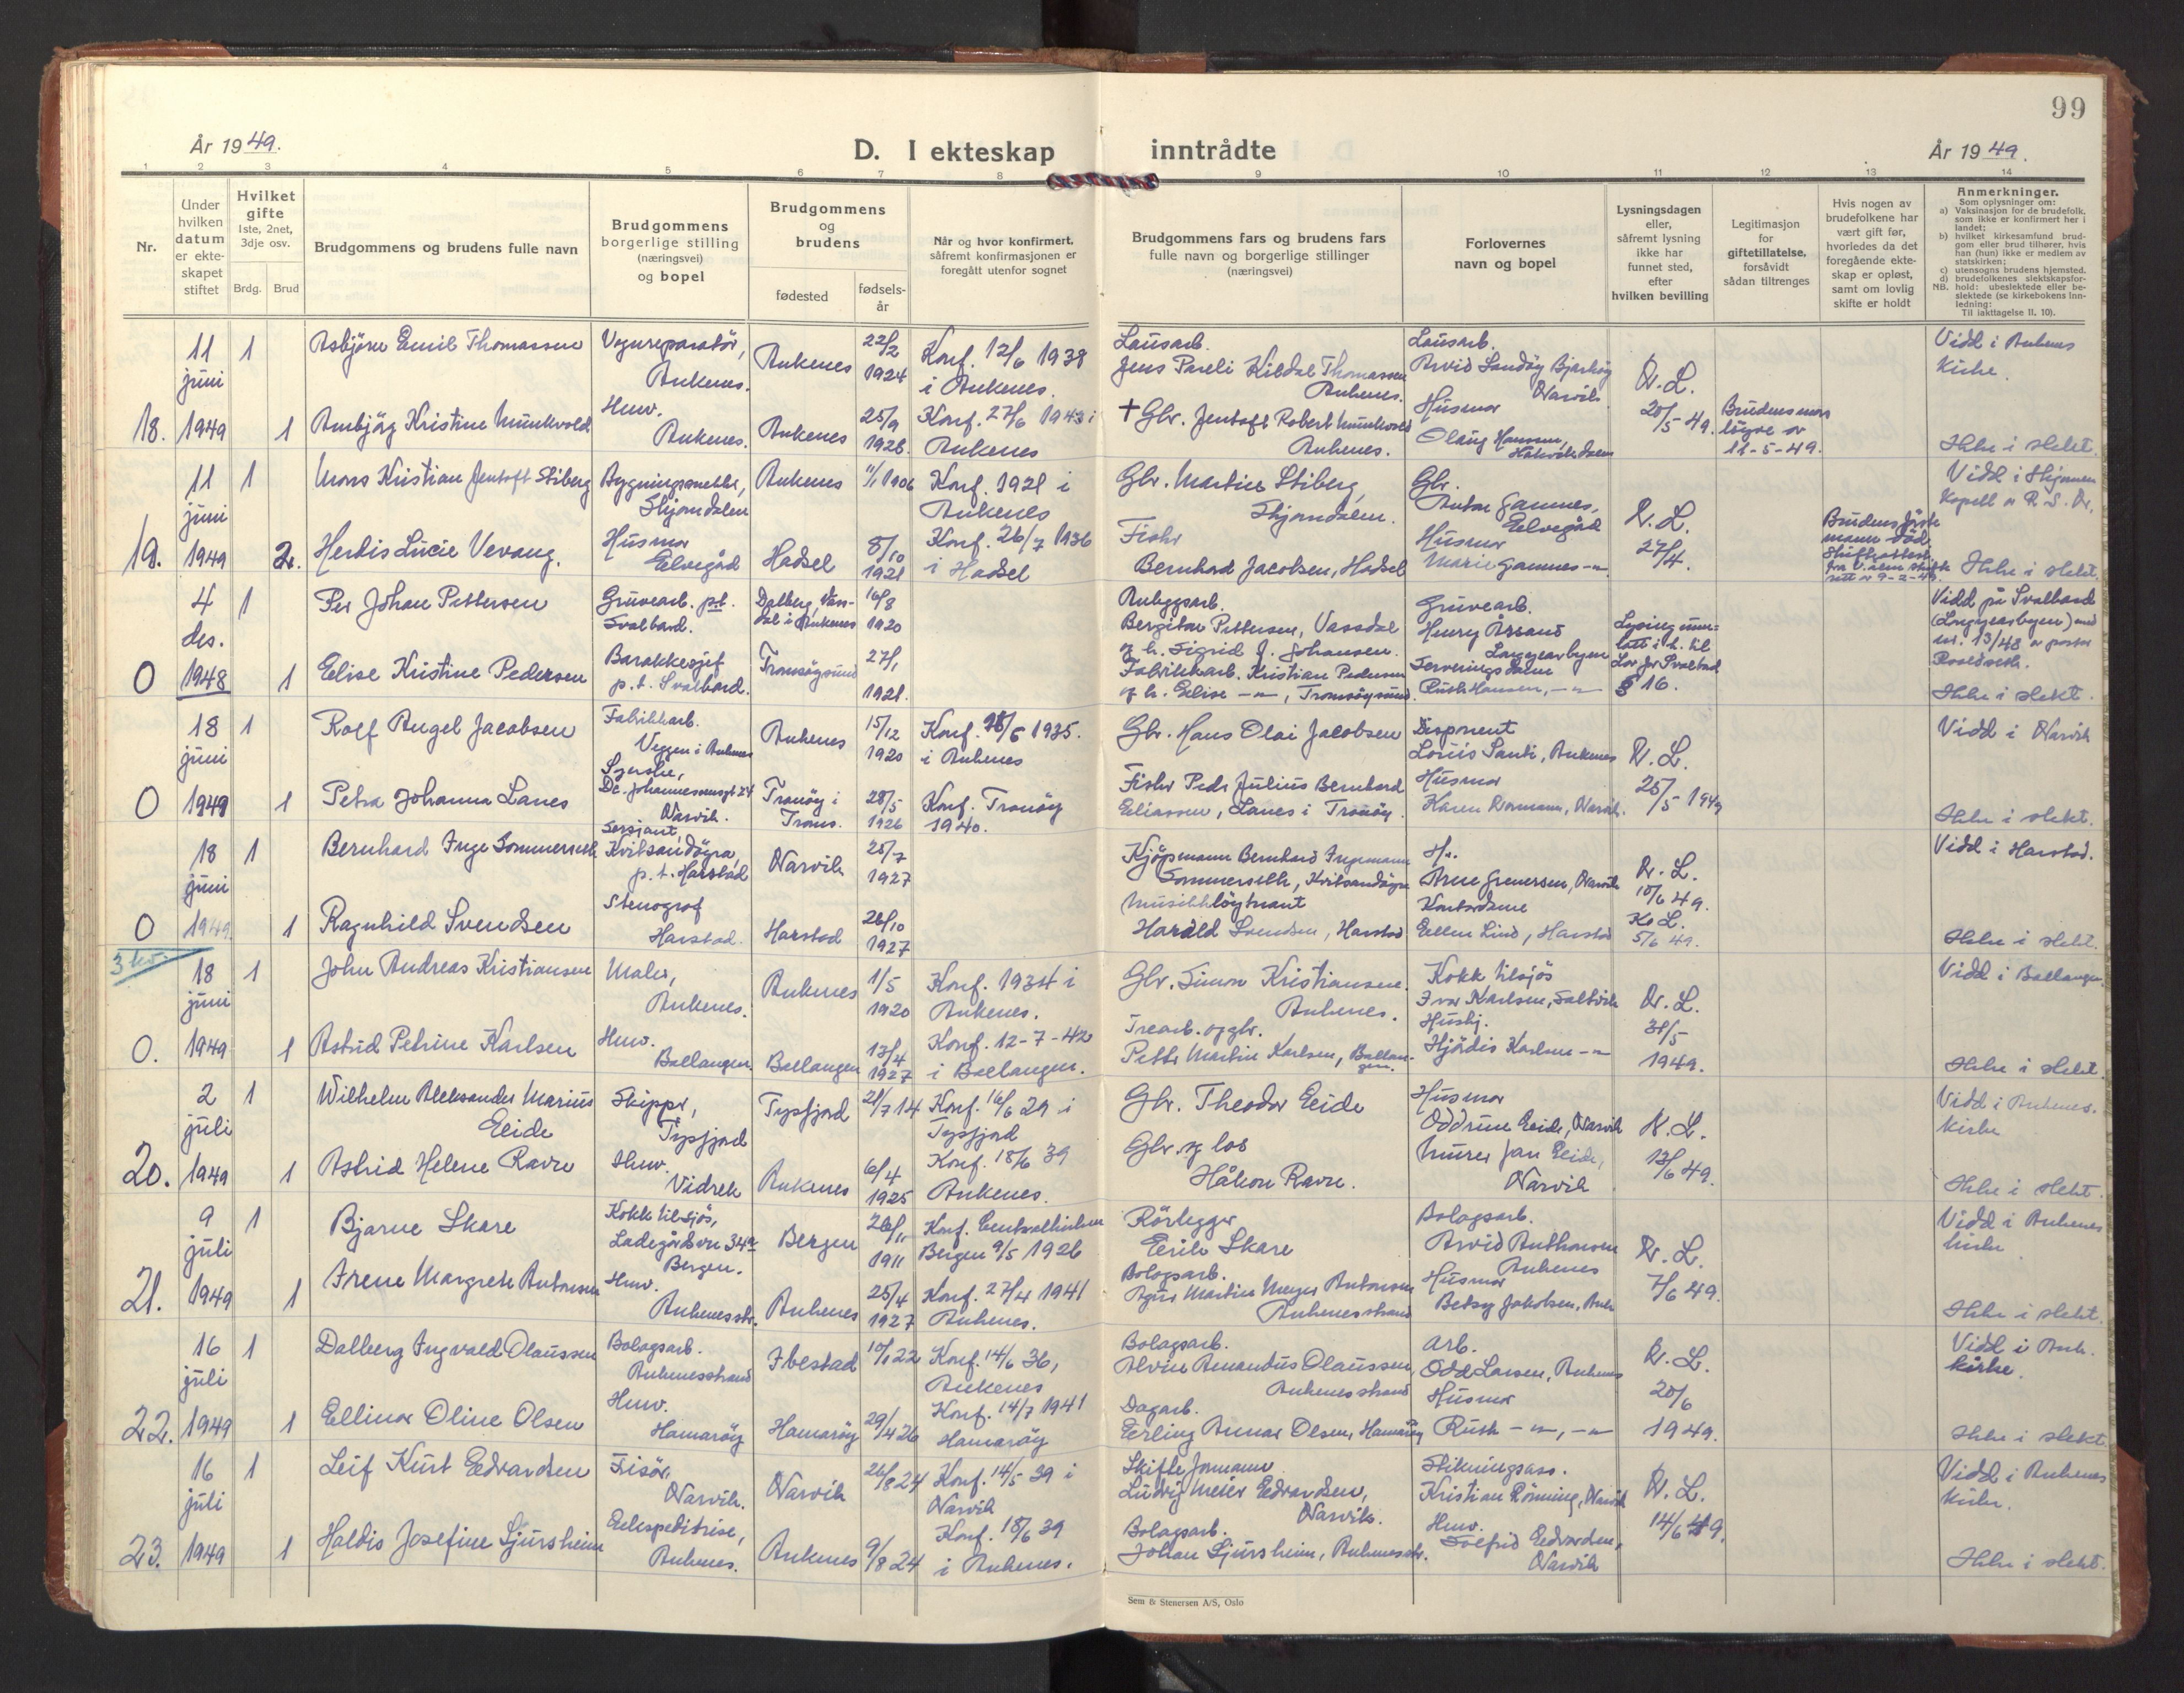 99
År 1949.
D. I ekteskap inntrådte
År 1949.
1 2 3 4 5 6 7 8 9 10 11 12 13 14
Nr.
Under hvilken datum er ekteskapet stiftet
Hvilket gifte
1ste, 2net, 3dje osv.
Brdg. Brud
Brudgommens og brudens fulle navn
Brudgommens borgerlige stilling (næringsvei) og bopel
Brudgommens og brudens
fødested
fødsels-år
Når og hvor konfirmert, såfremt konfirmasjonen er foregått utenfor sognet
Brudgommens fars og brudens fars fulle navn og borgerlige stillinger (næringsvei)
Forlovernes navn og bopel
Lysningsdagen eller, såfremt lysning ikke har funnet sted, efter hvilken bevilling
Legitimasjon for giftetillatelse, forsåvidt sådan tiltrenges
Hvis nogen av brudefolkene har vært gift før, hvorledes da det foregående ekteskap er opløst, samt om lovlig skifte er holdt
Anmerkninger.
Som oplysninger om:
a) Vaksinasjon for de brudefolk, som ikke er konfirmert her i landet;
b) hvilket kirkesamfund brudgom eller brud tilhører, hvis han (hun) ikke er medlem av statskirken;
c) utensogns brudens hjemsted.
d) brudefolkenes slektskapsforhold: ubeslektede eller beslektede (se kirkebokens Innledning:
NB.
Til iakttagelse II. 10).
11 juni 1 Asbjörn Emil Thomassen Vognreparatör, Ankenes. Ankenes 22/2 1924 Konf. 12/6 1938 i Ankenes.
Lausarb. Jens Pareli Kildal Thomassen Ankenes.
Lausarb. Arvid Sandöy Narvik
N. L. 20/5-49.
Vidd i Ankenes Kirke.
18. 1949 1 Kristine Munkvold Huv. Ankenes. Ankenes 25/9 1928. Konf. 27/6 1943 i Ankenes
† Gbr. Jentoft Robert Munkvold Ankenes.
Husmor Hansen,
Brudens mors löyve av 11-5-49.
Ikke i slekt.
11 juni 1 Mons Kristian Jentoft Stiberg Bygningssnekker, Skjomdalen Ankenes 11/1 1906 Konf. 1921 i Ankenes
Gbr. Martin Stiberg, Skjomdalen.
Gbr. Anton Gamnes, Elvegård
N. L. 27/4.
Vidd i Skjomen Kapell av R. S. Kr.
19. 1949 2. Herdis Lucie Vevang. Husmor Elvegård Hadsel 8/10 1921 Konf. 26/7 1936 i Hadsel
Fiskr Bernhard Jacobsen, Hadsel
Husmor Marie Gamnes -"-
Brudens förste mann död.
Ikke i slekt.
4 des. 1 Per Johan Pettersen Gruvearb. p.t. Svalbard. Dalberg, Vassdal i Ankenes 16/8 1920
Anleggsarb. Bergiton Pettersen, Vassdal og h. Sigrid f. Johansen.
Gruvearb. Henry Årsand Longyearbyen
§ 16.
Vidd på Svalbard (Longyearbyen) med nr. 13/48
0 1948 1 Elise Kristine Pedersen Barakkesjef p.t. Svalbard. Tromsöysund 27/1 1921.
Fabrikkarb. Kristian Pedersen og h. Elise -"-, Tromsöysund.
Serveringsdame Ruth Hansen, -"-
Ikke i slekt.
18 juni 1 Rolf Angel Jacobsen Fabrikkarb. Veggen i Ankenes Ankenes 15/12 1920 Konf. 1935. i Ankenes
Gbr. Hans Olai Jacobsen
Disponent Louis Santi, Ankenes
N. L. 25/5 1949
Vidd i Narvik
0 1949 1 Petra Johanna Lanes Syerske, Narvik. Tranöy i Troms. 28/5 1926 Konf. Tranöy 1940.
Fiskr Peder Julius Bernhard Eliassen, Lanes i Tranöy.
Husmor Karen Normann, Narvik.
Ikke i slekt.
18 juni 1 Bernhard Inge Sommerseth Sersjant, Kvitsandöyra, p.t. Harstad Narvik 25/7 1927
Kjöpmann Bernhard Ingemann Sommerseth, Kvitsandöyra
Hr. Arne Grenersen, Narvik
N. L. 10/6 49.
Vidd i Harstad.
0 1949 1 Ragnhild Svendsen Stenograf Harstad. Harstad 26/10 1927
Musikklöytnant Harald Svendsen, Harstad
Kontordame Ellen Lind, Harstad
K. L. 5/6 49.
Ikke i slekt.
18 juni 1 John Andreas Kristiansen Maler, Ankenes. Ankenes 1/5 1920 Konf. 1934 i Ankenes.
Gbr. Simon Kristiansen. Ankenes.
Kokk tilsjös Ivar Karlsen, Saltvik
N. L. 31/5 1949.
Vidd i Ballangen.
0. 1949 1 Astrid Petrine Karlsen Huv. Ballangen. Ballangen 13/4 1927 Konf. 12-7-42 i Ballangen.
Trearb. og gbr. Petter Martin Karlsen, Ballangen.
Husbj. Hjördis Karlsen -"-
Ikke i slekt.
2 juli 1 Wilhelm Aleksander Marius Eide Skipper, Tysfjord Tysfjord 21/7 14 Konf. 16/6 29 i Tysfjord
Gbr. Theodor Eide
Husmor Oddrun Eide, Narvik
N. L. 13/6 49.
Vidd i Ankenes. Kirke
20. 1949 1 Astrid Helene Ravn Huv. Vidrek Ankenes 6/4 1925 Konf. 18/6 39 Ankenes.
Gbr. og los Håkon Ravn.
Murer Jan Eide, Narvik
Ikke i slekt.
9 juli 1 Bjarne Skare Kokk tilsjös, Ladegårdsvn 34a Bergen. Bergen 26/11 1911 Bergen 9/5 1926
Rörlegger Eirik Skare
Bolagsarb. Arvid Anthonsen Ankenes
N. L. 7/6 49.
Vidd i Ankenes kirke
21. 1949 1 Irene Margrete Antonsen Huv. Ankenesstr. Ankenes 25/4 1927 Konf. 27/4 1941 Ankenes.
Bolagsarb. Martin Meyer Antonsen Ankenesstrand
Husmor Betsy Jakobsen, Ank
Ikke i slekt.
16 juli 1 Dalberg Ingvald Olaussen Bolagsarb. Ankenesstrand Ibestad 10/1 22 Konf. 14/6 36, Ankenes
Bolagsarb. Alvin Amandus Olaussen, Ankenesstrand
Arb. Odd Larsen, Ankenes
N. L. 20/6 1949.
Vidd i Ank. kirke.
22. 1949 1 Ellinor Oline Olsen Huv. Hamaröy Hamaröy 29/4 26 Konf. 14/7 1941 Hamaröy
Dagarb. Erling Annar Olsen, Hamaröy
Husmor Ruth -"-, -"-
Ikke i slekt
16 juli 1 Leif Kurt Edvardsen Frisör, Narvik. Narvik 26/8 24 Konf. 14/5 39 i Narvik
Skifteformann Ludvig Meier Edvardsen, Narvik.
Stikningsass. Kristian Rönning, Narvik
N. L. 14/6 49.
Vidd i Ankenes Kirke.
23. 1949 1 Haldis Josefine Sjursheim Ekspeditrise, Ankenes. Ankenes 9/8 24 Konf. 18/6 39 i Ankenes.
Bolagsarb. Johan Sjursheim, Ankenesstr.
Huv. Solfrid Edvardsen, Narvik
Ikke i slekt.
Sem & Stenersen A/S, Oslo